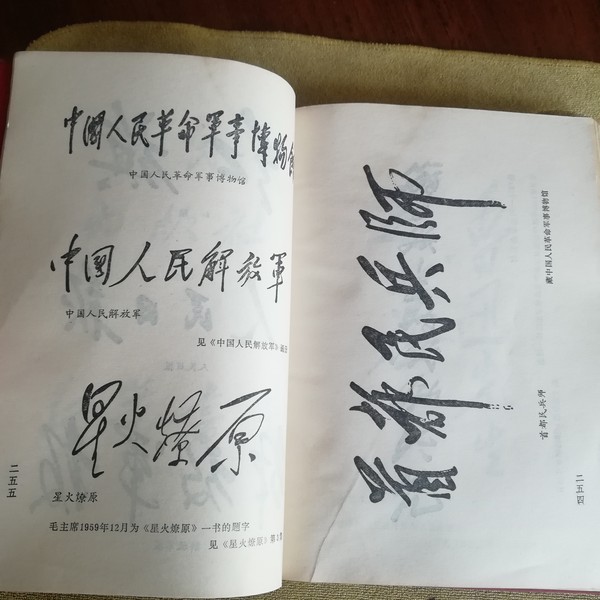 中國人民革命軍事博物
中国人民革命军事博物馆
中国人民解放軍
中国人民解放军
见《中国人民解放军》
星火燎原
星火燎原
毛主席1959年12月为《星火燎原》一书的题字
见《星火燎原》第
二五五
首都民兵师
首都民兵师
藏中国人民革命军事博物馆
二五四